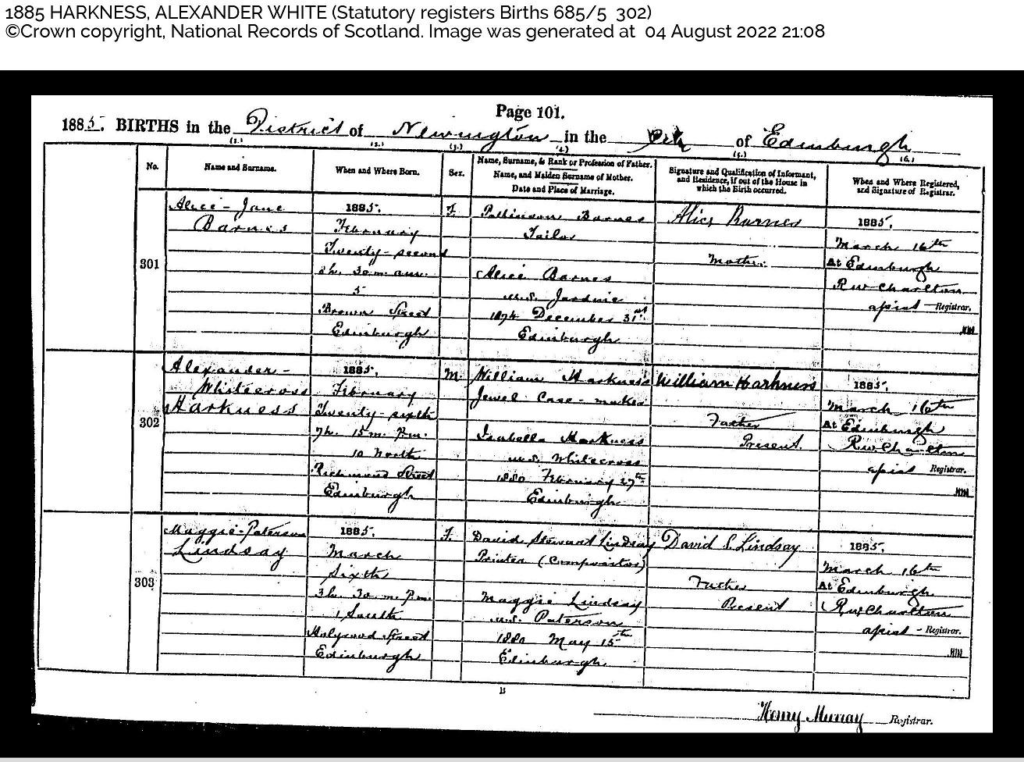 1885 HARKNESS, ALEXANDER WHITE (Statutory registers Births 685/5 302)
©Crown copyright, National Records of Scotland. Image was generated at 04 August 2022 21:08
Page 101.
1885. BIRTHS in the District of Newington in the City of Edinburgh
(1.) (2.) (3.) (4.) (5.) (6.)
No.
Name and Surname.
When and Where Born.
Sex.
Name, Surname, & Rank or Profession of Father.
Name, and Maiden Surname of Mother.
Date and Place of Marriage.
Signature and Qualification of Informant,
and Residence, if out of the House in
which the Birth occurred.
When and Where Registered,
and Signature of Registrar.
301
Alice-Jane
Barnes
1885.
February
Twenty-second
3h. 30m. a.m.
5
Brown Street
Edinburgh
F.
Barnes
Tailor
Alice Barnes
m.s. Jardine
1874 December 31st
Edinburgh
Alice Barnes
Mother.
1885.
March 16th
At Edinburgh
R W Charlton
Registrar.
302
Alexander-
Whitecross
Harkness
1885.
February
Twenty-sixth
7h. 15m. P.m.
10 North
Richmond Street
Edinburgh
M.
William Harkness
Jewel Case-maker
Isabella Harkness
m.s. Whitecross
1880 February 27th
Edinburgh
William Harkness
Father
Present.
1885.
March 16th
At Edinburgh
R W Charlton
Registrar.
303
Maggie-Paterson
Lindsay
1885.
March
Sixth
3h. 30m. P.m.
1 South
Holyrood Street
Edinburgh
F.
David Steward Lindsay
Printer (Compositor)
Maggie Lindsay
m.s. Paterson
1880 May 15th
Edinburgh
David S. Lindsay
Father
Present
1885.
March 16th
At Edinburgh
R W Charlton
Registrar.
B
Henry Murray Registrar.